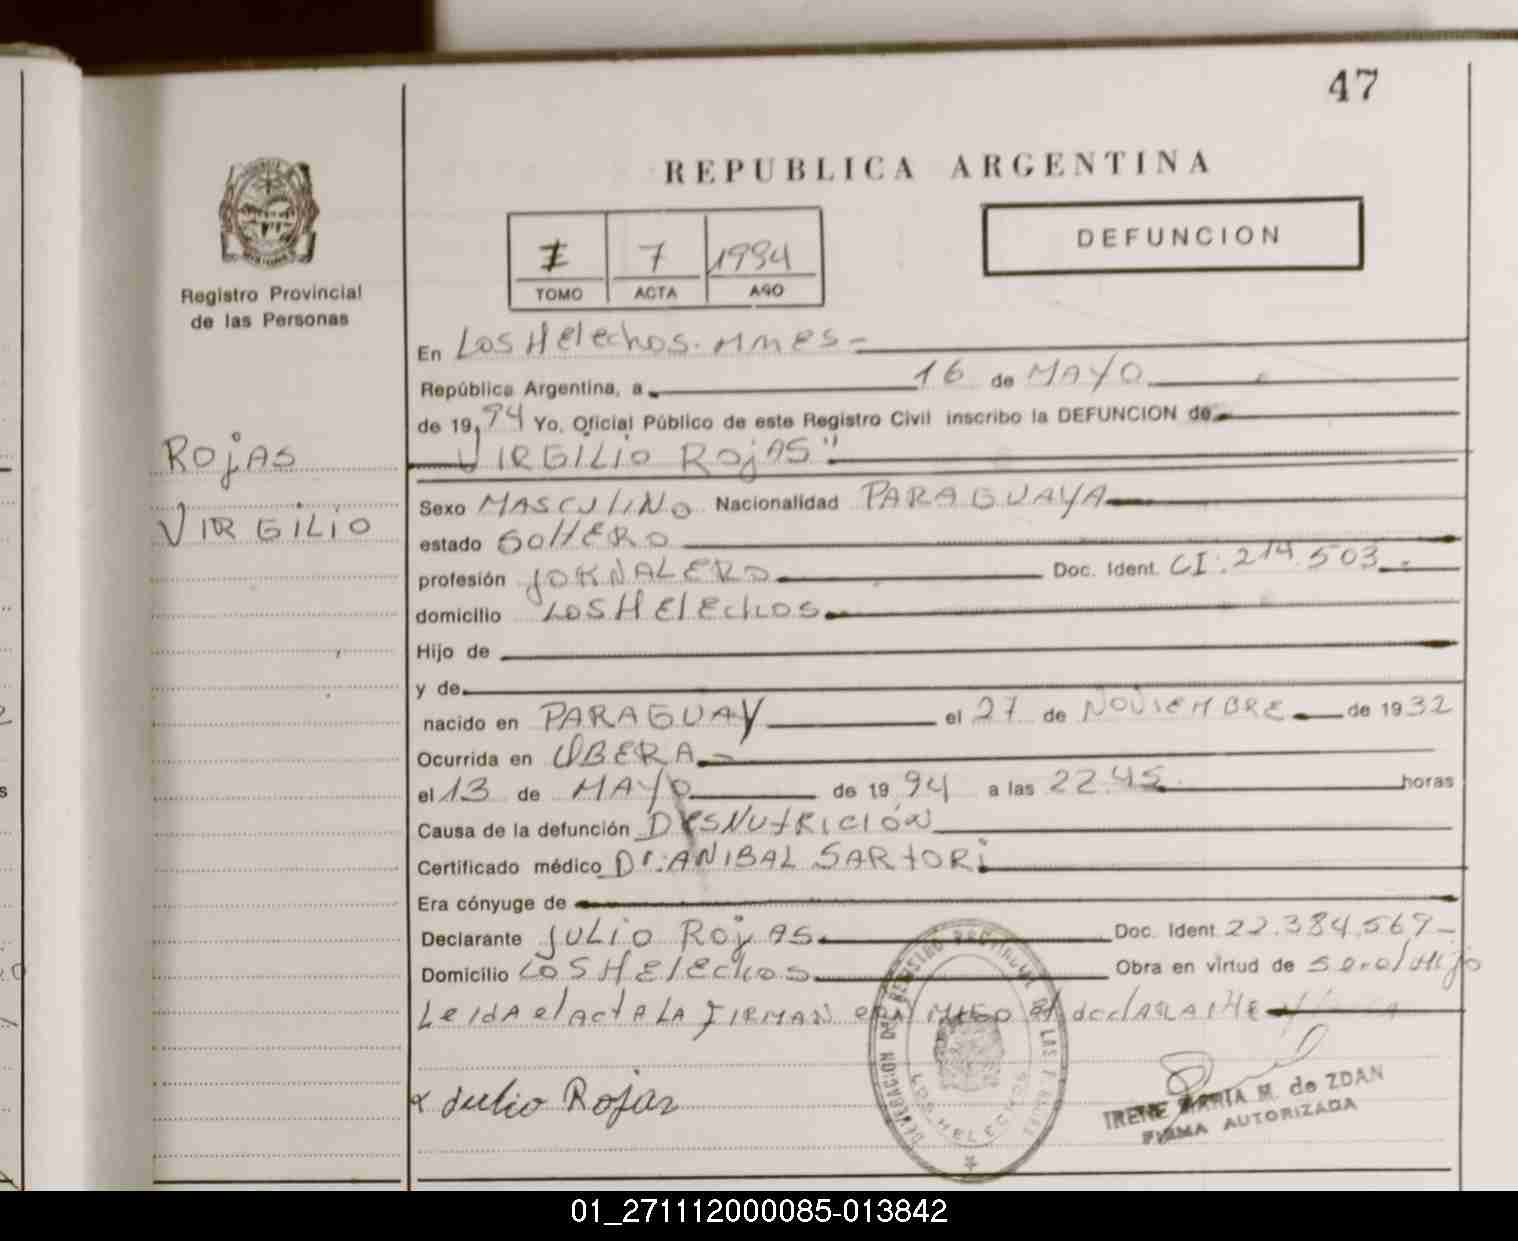 47
REPUBLICA ARGENTINA
DEFUNCION
7 1994
TOMO ACTA AÑO
Registro Provincial
de las Personas
ROJAS
VIRGILIO
En Los Helechos. Mnes-
República Argentina, a 16 de MAYO
de 19 94 Yo, Oficial Público de este Registro Civil inscribo la DEFUNCION de
VIRGILIO ROJAS"
Sexo MASCULINO Nacionalidad PARAGUAYA
estado SOLTERO
profesión JORNALERO Doc. Ident. CI: 214.503
domicilio Los HElEchos
Hijo de
y de
nacido en PARAGUAY el 27 de NOVIEMBRE de 1932
Ocurrida en OBERA
el 13 de MAYO de 19 94 a las 22.45 horas
Causa de la defunción DESNUTRICIÓN
Certificado médico Dr. ANIBAL SARTORI
Era cónyuge de
Declarante JULIO ROJAS Doc. Ident. 22.384.567-
Domicilio Los HElEchos Obra en virtud de ser el Hijo
Leida el acta LA FIRMAN el declarante
x Julio Rojas
DELEGACION DEL REGISTRO PROVINCIAL DE LAS PERSONAS
LOS HELECHOS
IRENE MARIA M. de ZDAN
FIRMA AUTORIZADA
01_271112000085-013842